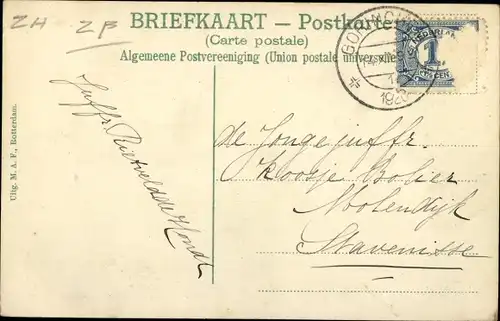 ZH ZB
BRIEFKAART — Postkarte
(Carte postale)
Algemeene Postvereeniging (Union postale universelle)
NEDERLAND
1
CENT
1923
Uitg. M. A. F., Rotterdam.
Juffr. Rietveld de Hondt
de Jongejuffr.
Koosje Bolier
Molendijk
Stavenisse